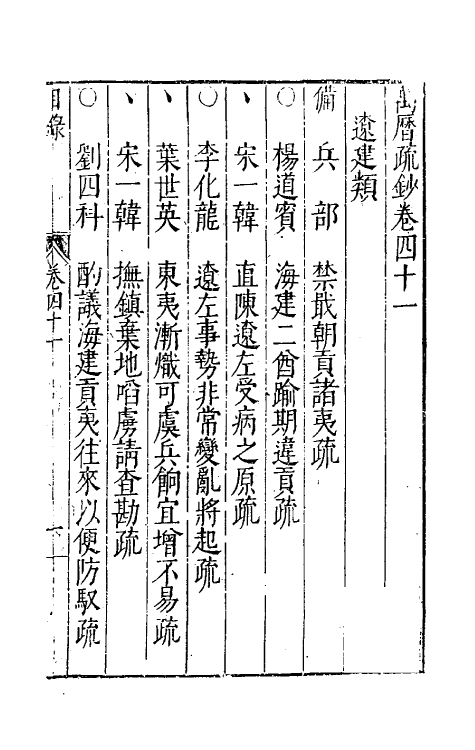 萬曆疏鈔卷四十一
遼建類
備 兵部 禁戢朝貢諸夷疏
○ 楊道賓 海建二酋踰期違貢疏
、 宋一韓 直陳遼左受病之原疏
○ 李化龍 遼左事勢非常變亂將起疏
、 葉世英 東夷漸熾可虞兵餉宜增不易疏
、 宋一韓 撫鎮棄地啗虜請查勘疏
○ 劉四科 酌議海建貢夷往來以便防馭疏
目錄 卷四十一